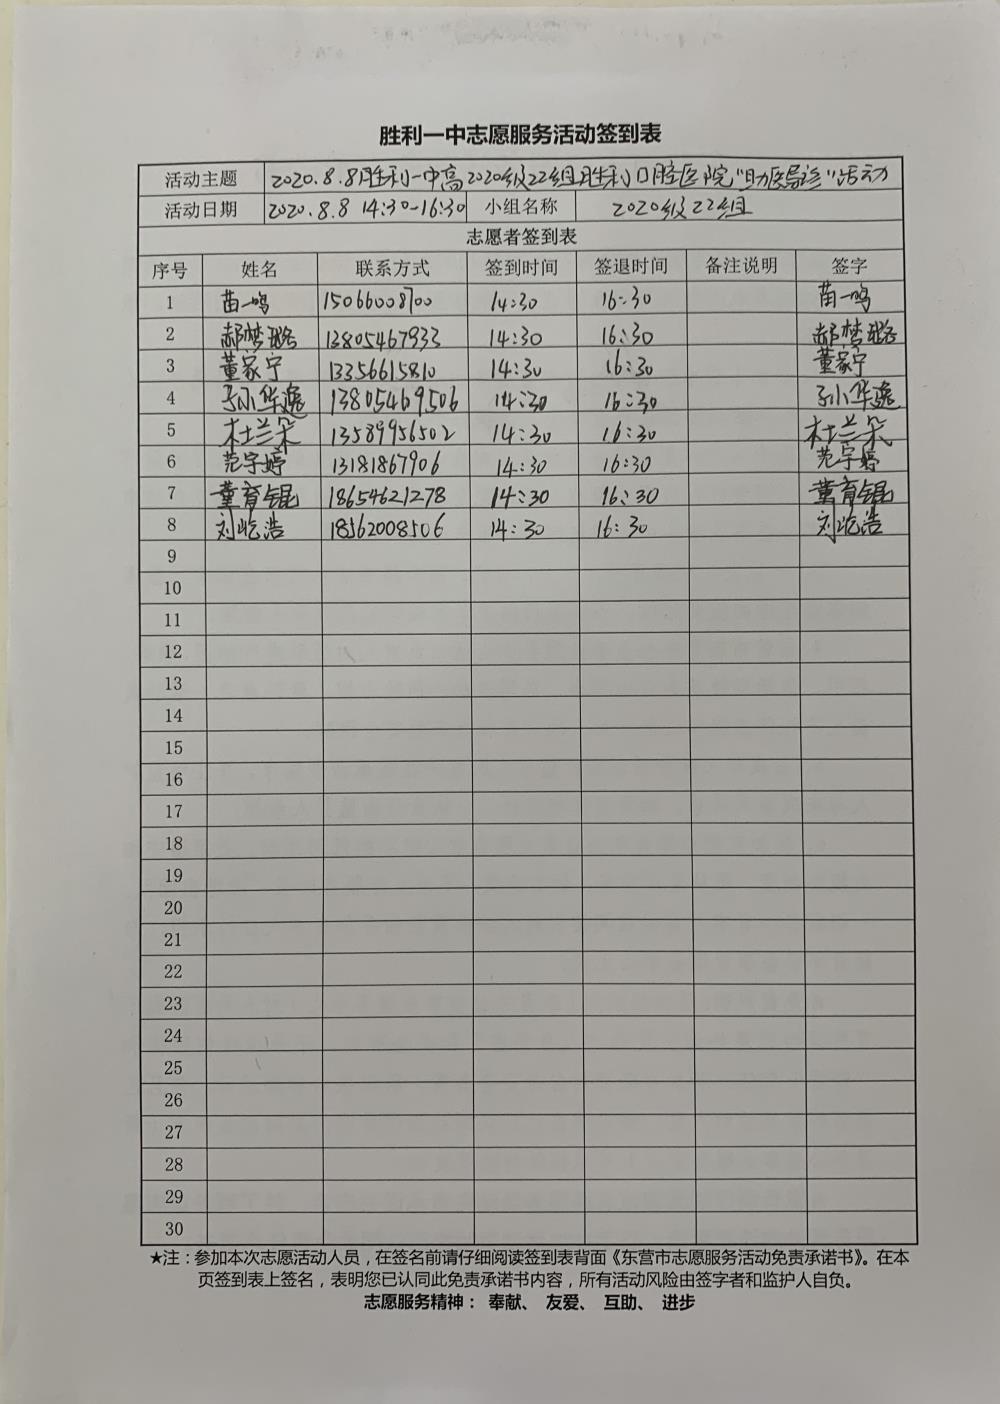 胜利一中志愿服务活动签到表
活动主题 2020.8.8胜利一中高2020级22组胜利口腔医院"助医导诊"活动
活动日期 2020.8.8 14:30-16:30 小组名称 2020级22组
志愿者签到表
序号 姓名 联系方式 签到时间 签退时间 备注说明 签字
1 苗一鸣 15066008700 14:30 16:30 苗一鸣
2 郝梦璐 13805467933 14:30 16:30 郝梦璐
3 董家宁 13356615810 14:30 16:30 董家宁
4 孙华逸 13805469506 14:30 16:30 孙华逸
5 杜兰朵 13589956502 14:30 16:30 杜兰朵
6 范宇婷 13181867906 14:30 16:30 范宇婷
7 董育锟 18654621278 14:30 16:30 董育锟
8 刘屹浩 18562008506 14:30 16:30 刘屹浩
9
10
11
12
13
14
15
16
17
18
19
20
21
22
23
24
25
26
27
28
29
30
★注：参加本次志愿活动人员，在签名前请仔细阅读签到表背面《东营市志愿服务活动免责承诺书》。在本
页签到表上签名，表明您已认同此免责承诺书内容，所有活动风险由签字者和监护人自负。
志愿服务精神： 奉献、 友爱、 互助、 进步